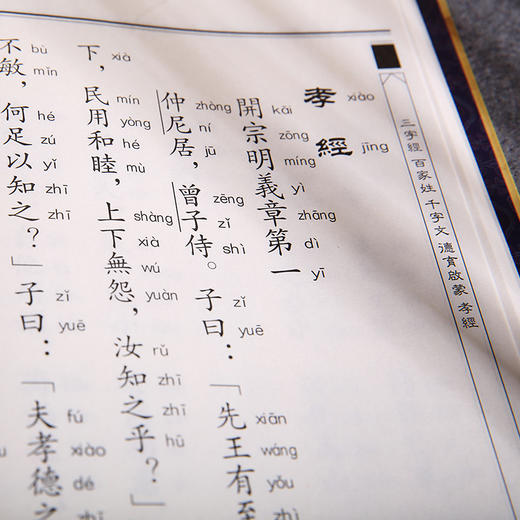 三字經 百家姓 千字文 德育啟蒙 孝經
孝經
xiào jīng
開宗明義章第一
kāi zōng míng yì zhāng dì yī
仲尼居，曾子侍。子曰：「先王有至
zhòng ní jū zēng zǐ shì zǐ yuē xiān wáng yǒu zhì
下，民用和睦，上下無怨，汝知之乎？」
xià mín yòng hé mù shàng xià wú yuàn rǔ zhī zhī hū
不敏，何足以知之？」子曰：「夫孝德之
bù mǐn hé zú yǐ zhī zhī zǐ yuē fú xiào dé zhī